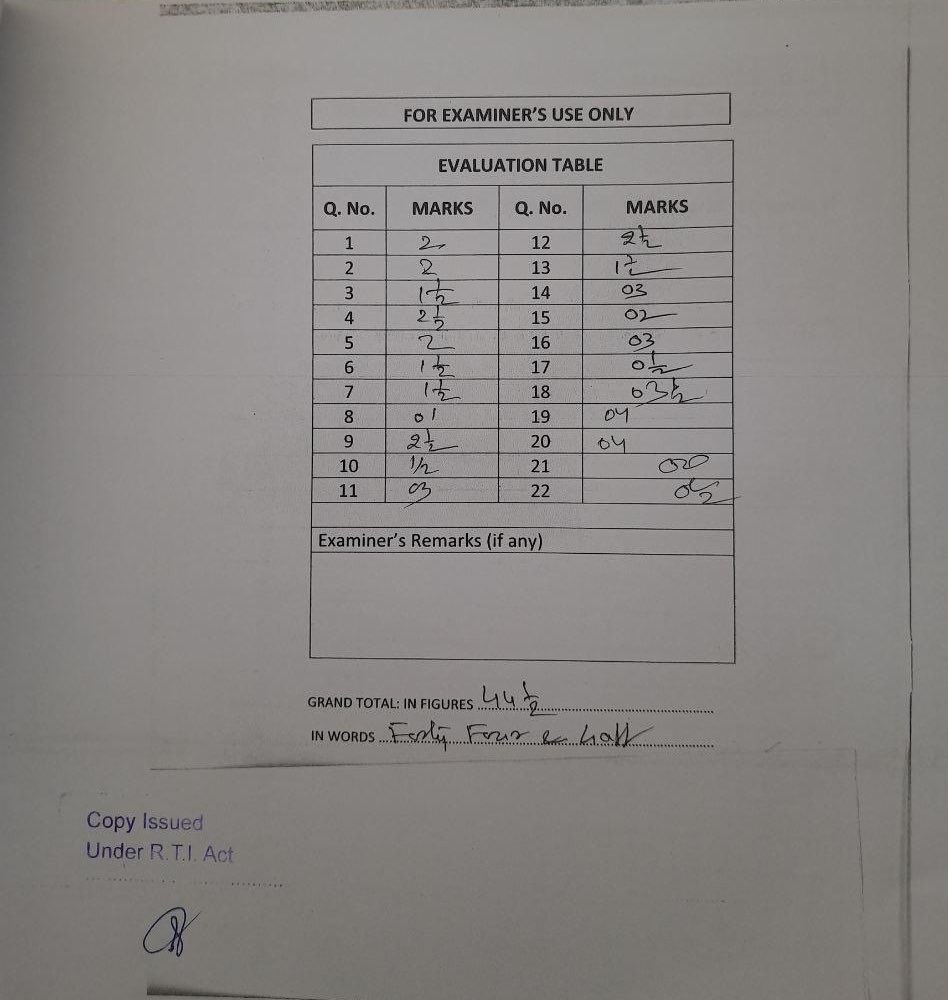 FOR EXAMINER'S USE ONLY
EVALUATION TABLE
Q. No. MARKS Q. No. MARKS
1 2 12 2½
2 2 13 1½
3 1½ 14 03
4 2½ 15 02
5 2 16 03
6 1½ 17 0½
7 1½ 18 03½
8 01 19 04
9 2½ 20 04
10 1/2 21
11 03 22
Examiner's Remarks (if any)
GRAND TOTAL: IN FIGURES 44½
IN WORDS Forty Four & half
Copy Issued
Under R.T.I. Act